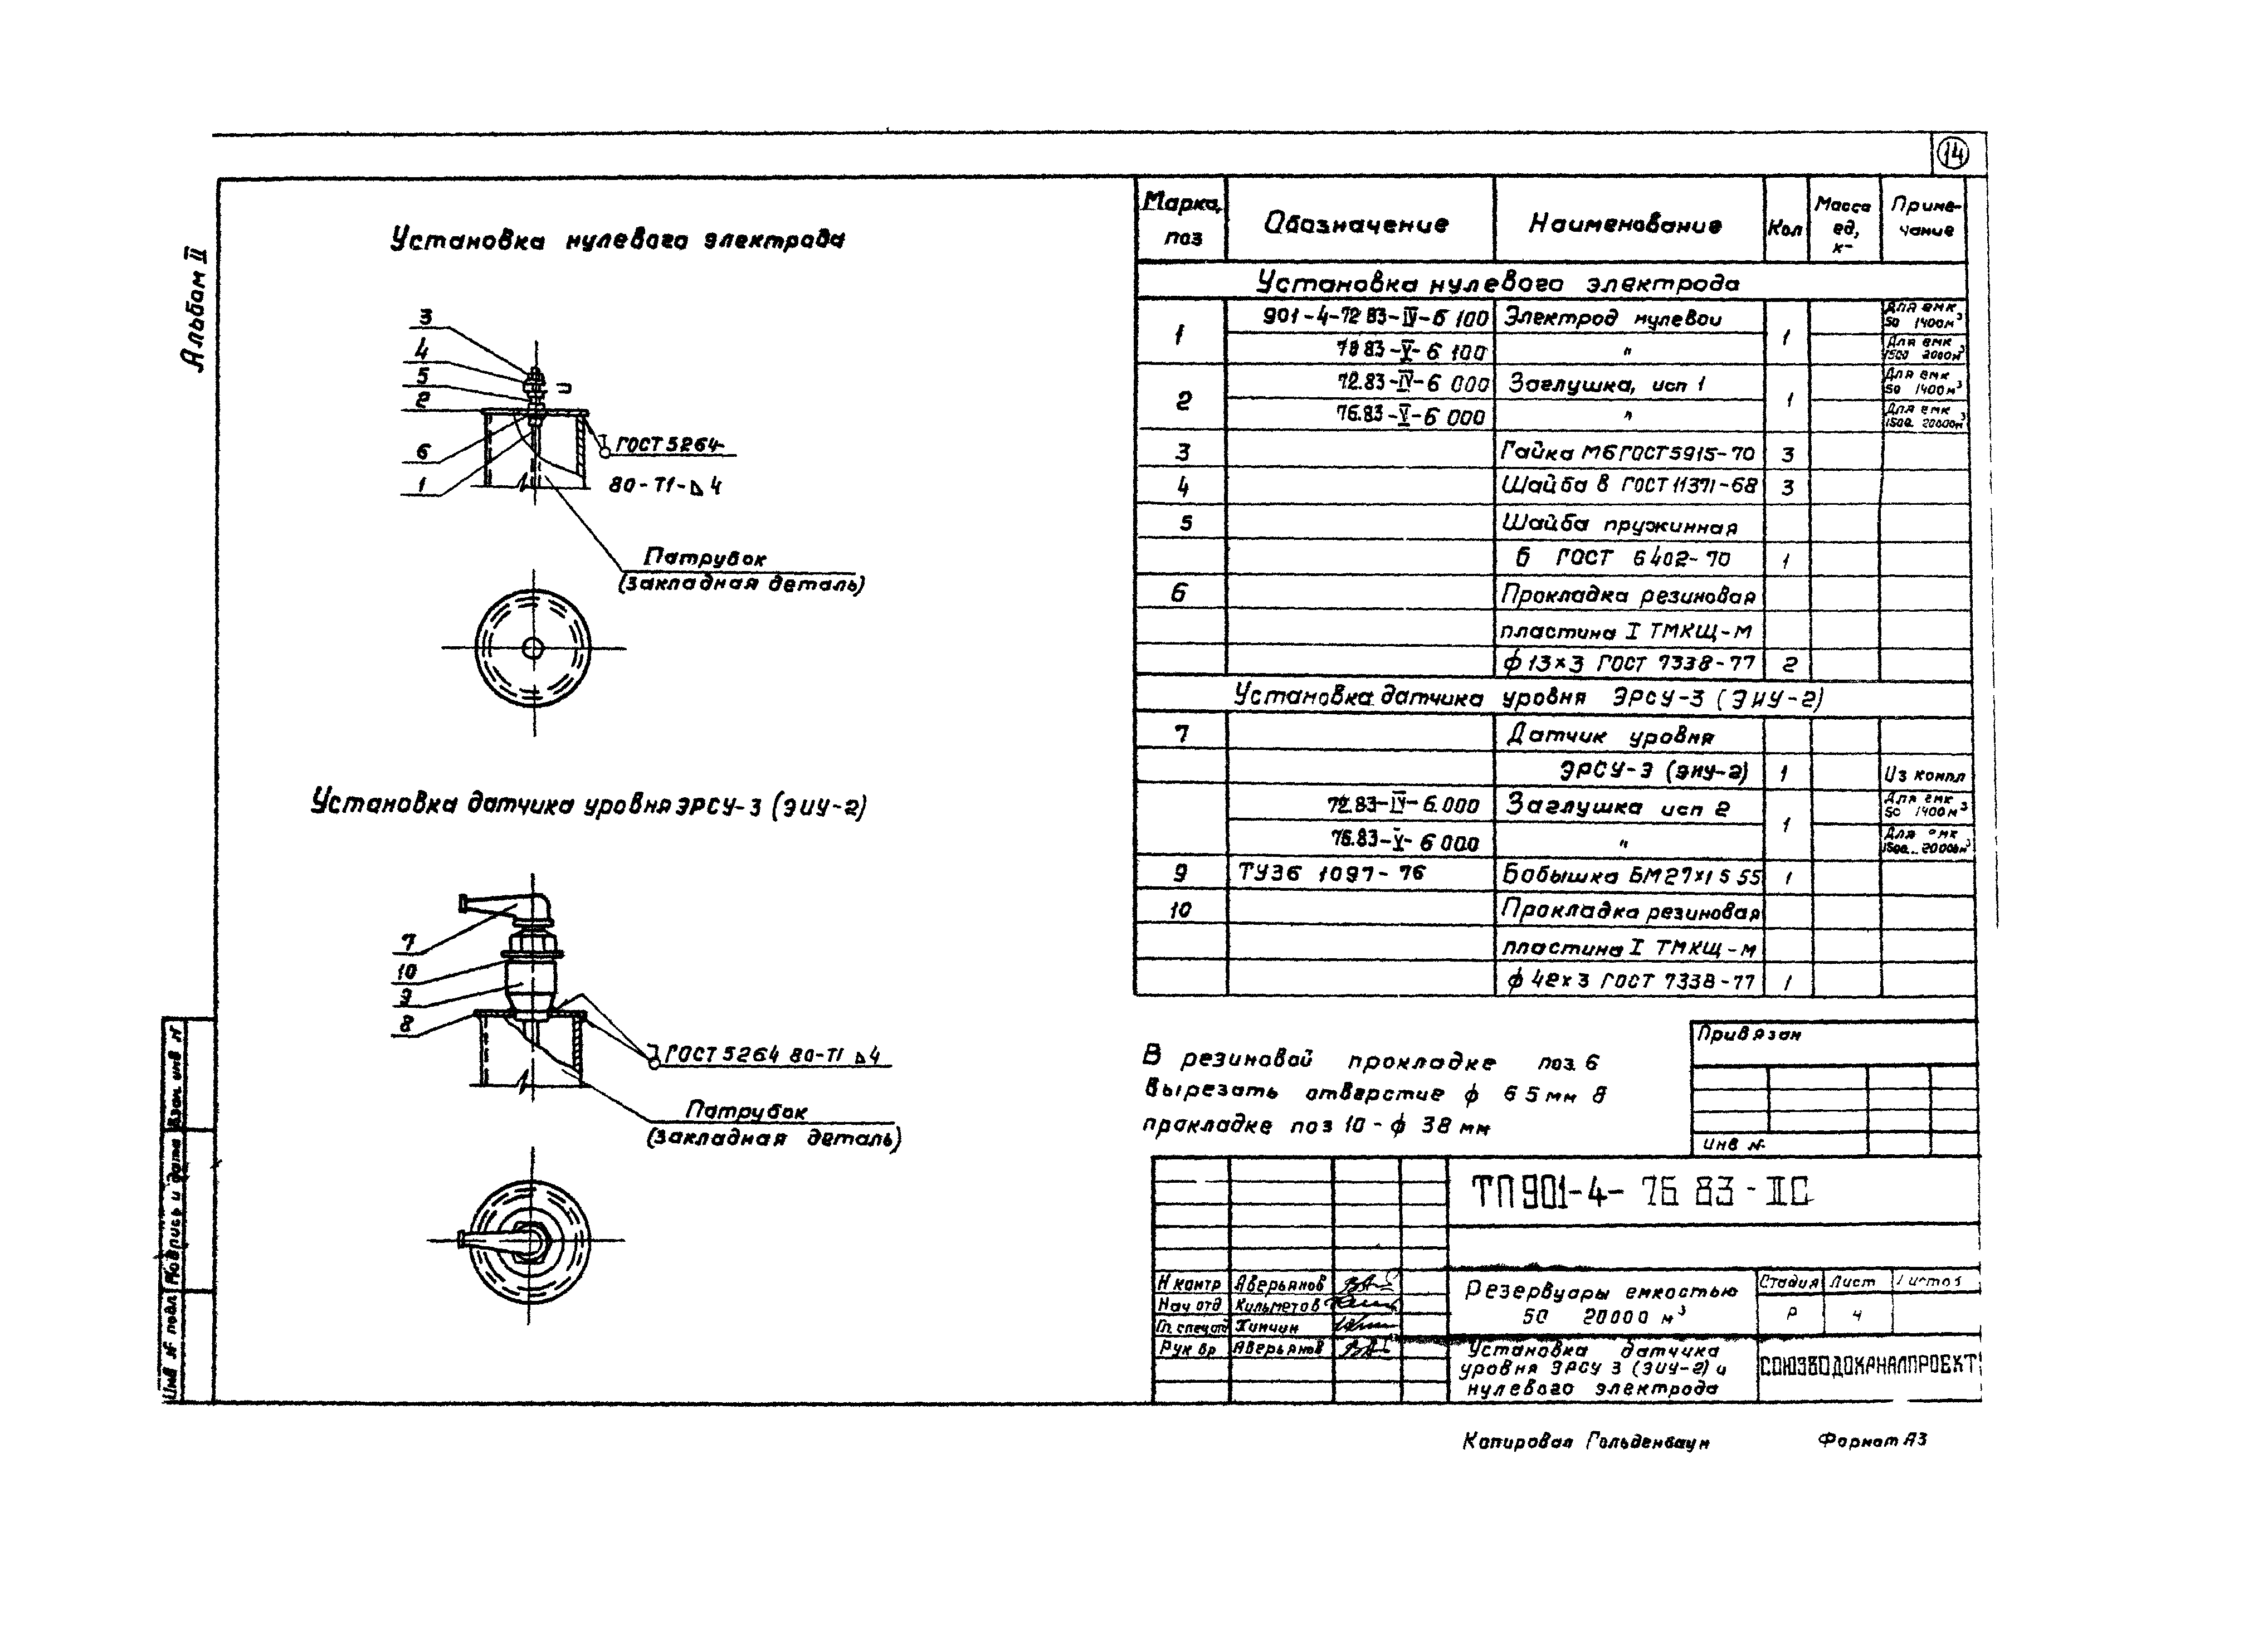 14
Альбом II
Установка нулевого электрода
3
4
5
2
6
1
ГОСТ 5264-
80-Т1-⊿4
Патрубок
(закладная деталь)
Установка датчика уровня ЭРСУ-3 (ЭИУ-2)
7
10
9
8
ГОСТ 5264 80-Т1 ⊿4
Патрубок
(закладная деталь)
Марка, поз | Обозначение | Наименование | Кол | Масса ед, | Примечание
Установка нулевого электрода
1 | 901-4-72 83-IV-6 100 | Электрод нулевой | 1 | Для емк 50 1400м³
83-V-6 100 | " | Для емк 1500 2000м³
2 | 72.83-IV-6 000 | Заглушка, исп 1 | 1 | Для емк 50 1400м³
76.83-V-6 000 | " | Для емк 1500.. 20000м³
3 | Гайка М6 ГОСТ 5915-70 | 3
4 | Шайба 6 ГОСТ 11371-68 | 3
5 | Шайба пружинная
6 ГОСТ 6402-70 | 1
6 | Прокладка резиновая
пластина I ТМКЩ-М
ф 13×3 ГОСТ 7338-77 | 2
Установка датчика уровня ЭРСУ-3 (ЭИУ-2)
7 | Датчик уровня
ЭРСУ-3 (ЭИУ-2) | 1 | Из компл
72.83-IV-6.000 | Заглушка исп 2 | 1 | Для емк 50 1400м³
76.83-V-6 000 | " | Для емк 1500... 20000м³
9 | ТУ36 1097-76 | Бобышка БМ27×1 5 55 | 1
10 | Прокладка резиновая
пластина I ТМКЩ-М
ф 42×3 ГОСТ 7338-77 | 1
В резиновой прокладке поз. 6
вырезать отверстие ф 6 5 мм В
прокладке поз 10 - ф 38 мм
Привязан
Инв №
ТП 901-4-76 83-IIС
Н контр Аверьянов
Нач отд Кильметов
Гл. спец отд Хинчин
Рук бр Аверьянов
Резервуары емкостью
50 20000 м³
Стадия Лист Листов
Р 4
Установка датчика
уровня ЭРСУ 3 (ЭИУ-2) и
нулевого электрода
СОЮЗВОДОКАНАЛПРОЕКТ
Взам. инв №
Подпись и дата
Инв № подл
Копировал Гольденбаум
Формат А3